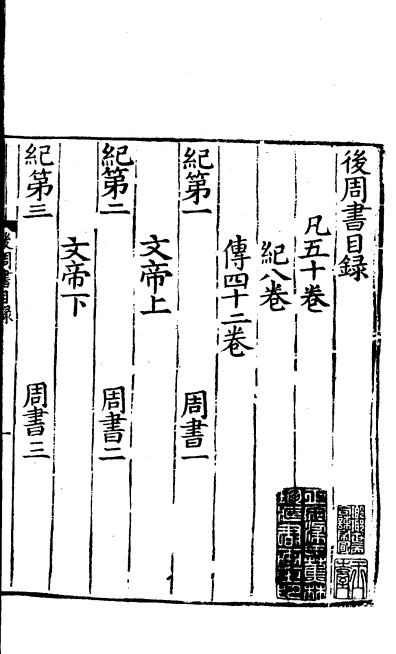 後周書目録
凡五十巻
紀八巻
傳四十二巻
紀第一 周書一
文帝上
紀第二 周書二
文帝下
紀第三 周書三
後周書目録
一